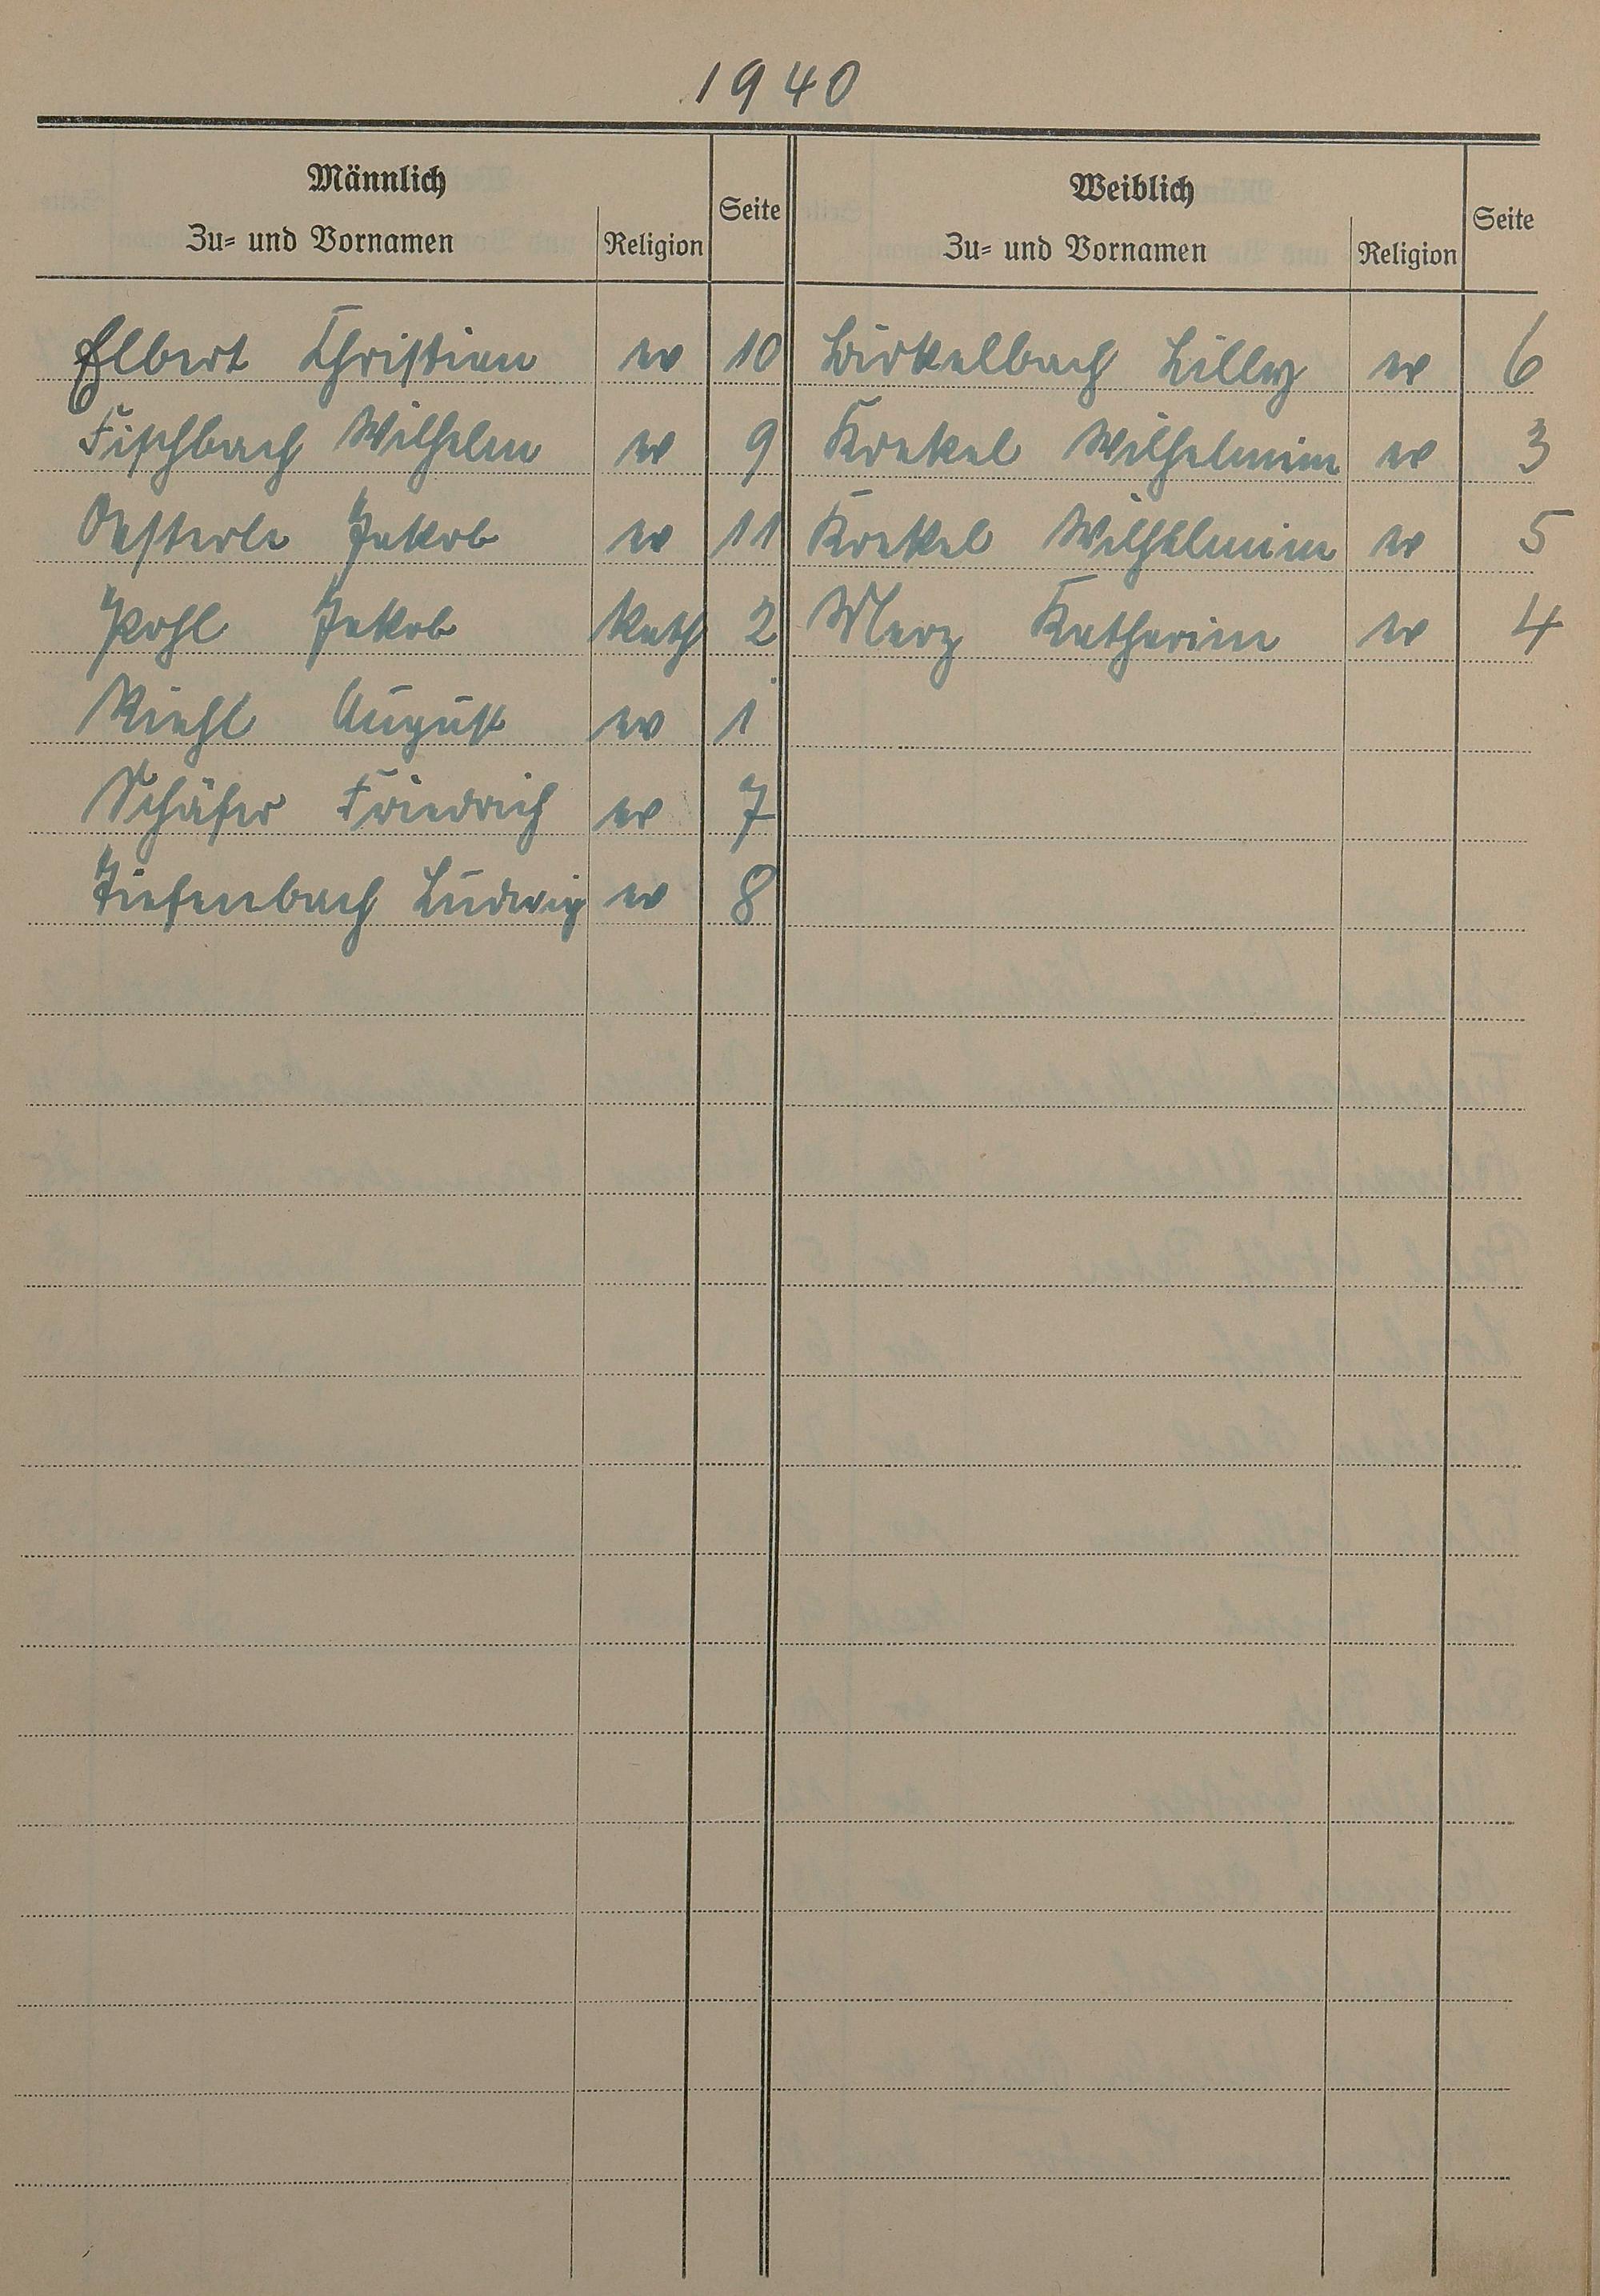 1940
Männlich
Zu= und Vornamen Religion Seite
Weiblich
Zu= und Vornamen Religion Seite
Elbert Christian ev 10 Birkelbach Lilly ev 6
Fischbach Wilhelm ev 9 Krekel Wilhelmine ev 3
Oesterle Jakob ev 11 Krekel Wilhelmine ev 5
Pohl Jakob kath 2 Merz Katharine ev 4
Riehl August ev 1
Schäfer Friedrich ev 7
Tiefenbach Ludwig ev 8